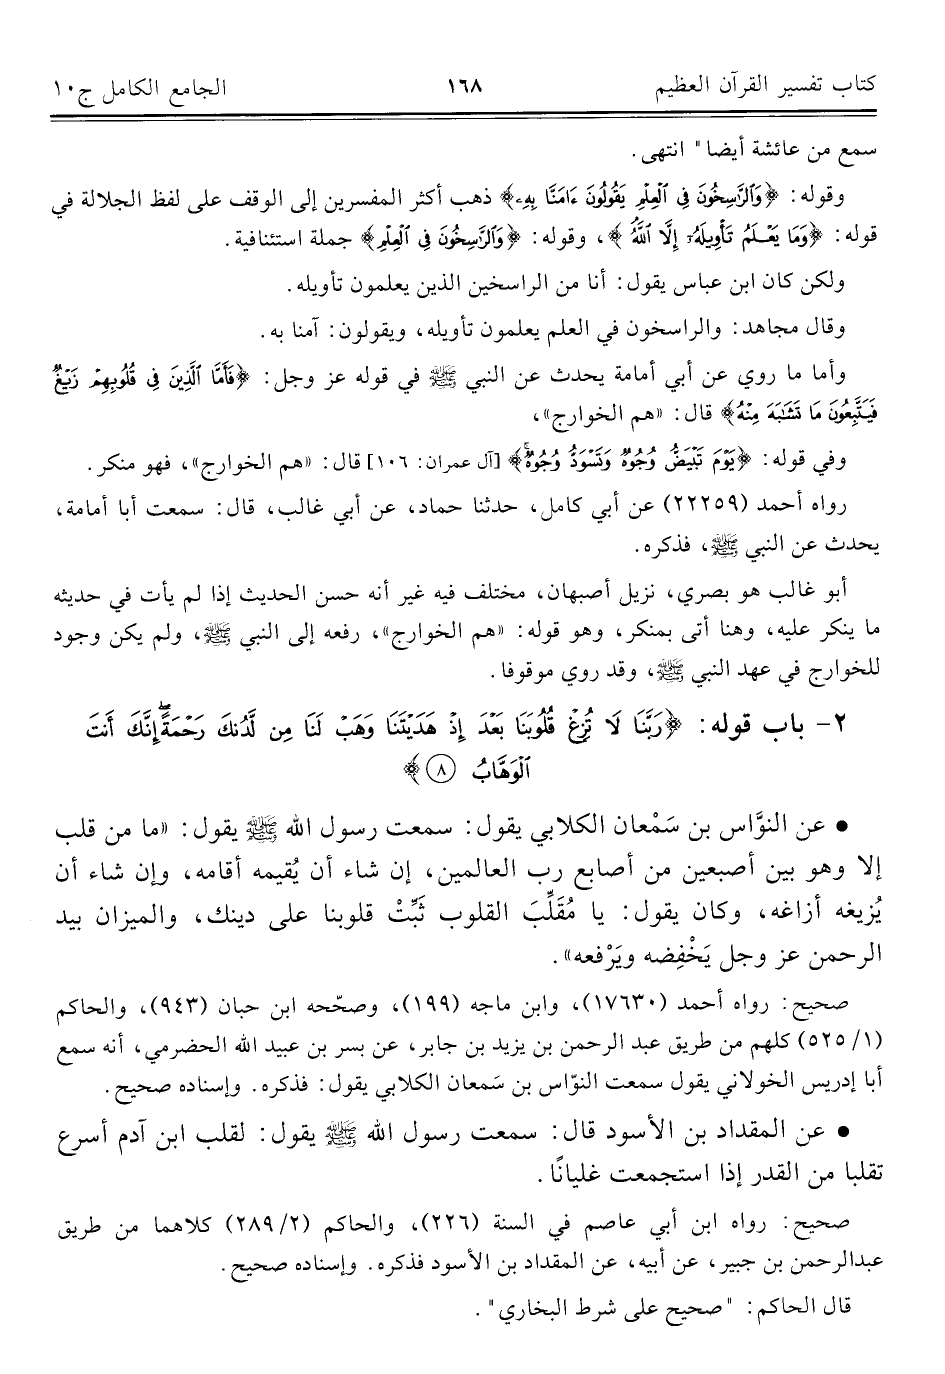 كتاب تفسير القرآن العظيم ١٦٨ الجامع الكامل ج١٠
سمع من عائشة أيضا" انتهى.
وقوله: ﴿وَٱلرَّٰسِخُونَ فِى ٱلْعِلْمِ يَقُولُونَ ءَامَنَّا بِهِۦ﴾ ذهب أكثر المفسرين إلى الوقف على لفظ الجلالة في
قوله: ﴿وَمَا يَعْلَمُ تَأْوِيلَهُۥٓ إِلَّا ٱللَّهُ﴾، وقوله: ﴿وَٱلرَّٰسِخُونَ فِى ٱلْعِلْمِ﴾ جملة استئنافية.
ولكن كان ابن عباس يقول: أنا من الراسخين الذين يعلمون تأويله.
وقال مجاهد: والراسخون في العلم يعلمون تأويله، ويقولون: آمنا به.
وأما ما روي عن أبي أمامة يحدث عن النبي ﷺ في قوله عز وجل: ﴿فَأَمَّا ٱلَّذِينَ فِى قُلُوبِهِمْ زَيْغٌ
فَيَتَّبِعُونَ مَا تَشَٰبَهَ مِنْهُ﴾ قال: «هم الخوارج»،
وفي قوله: ﴿يَوْمَ تَبْيَضُّ وُجُوهٌ وَتَسْوَدُّ وُجُوهٌۚ﴾ [آل عمران: ١٠٦] قال: «هم الخوارج»، فهو منكر.
رواه أحمد (٢٢٢٥٩) عن أبي كامل، حدثنا حماد، عن أبي غالب، قال: سمعت أبا أمامة،
يحدث عن النبي ﷺ، فذكره.
أبو غالب هو بصري، نزيل أصبهان، مختلف فيه غير أنه حسن الحديث إذا لم يأت في حديثه
ما ينكر عليه، وهنا أتى بمنكر، وهو قوله: «هم الخوارج»، رفعه إلى النبي ﷺ، ولم يكن وجود
للخوارج في عهد النبي ﷺ، وقد روي موقوفا.
٢- باب قوله: ﴿رَبَّنَا لَا تُزِغْ قُلُوبَنَا بَعْدَ إِذْ هَدَيْتَنَا وَهَبْ لَنَا مِن لَّدُنكَ رَحْمَةًۖ إِنَّكَ أَنتَ
ٱلْوَهَّابُ ٨﴾
• عن النوَّاس بن سَمْعان الكلابي يقول: سمعت رسول الله ﷺ يقول: «ما من قلب
إلا وهو بين أصبعين من أصابع رب العالمين، إن شاء أن يُقيمه أقامه، وإن شاء أن
يُزيغه أزاغه، وكان يقول: يا مُقَلِّبَ القلوب ثَبِّتْ قلوبنا على دينك، والميزان بيد
الرحمن عز وجل يَخْفِضه ويَرْفعه».
صحيح: رواه أحمد (١٧٦٣٠)، وابن ماجه (١٩٩)، وصحّحه ابن حبان (٩٤٣)، والحاكم
(١/ ٥٢٥) كلهم من طريق عبد الرحمن بن يزيد بن جابر، عن بسر بن عبيد الله الحضرمي، أنه سمع
أبا إدريس الخولاني يقول سمعت النوّاس بن سَمعان الكلابي يقول: فذكره. وإسناده صحيح.
• عن المقداد بن الأسود قال: سمعت رسول الله ﷺ يقول: لقلب ابن آدم أسرع
تقلبا من القدر إذا استجمعت غليانًا.
صحيح: رواه ابن أبي عاصم في السنة (٢٢٦)، والحاكم (٢/ ٢٨٩) كلاهما من طريق
عبدالرحمن بن جبير، عن أبيه، عن المقداد بن الأسود فذكره. وإسناده صحيح.
قال الحاكم: "صحيح على شرط البخاري".